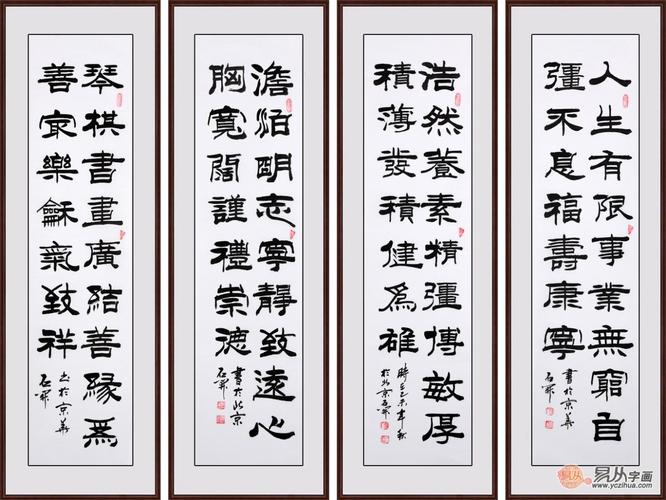 人生有限事業無窮自
彊不息福壽康寧
書於京華
浩然養素精彊博敏厚
積薄發積健為雄
於北京
澹泊明志寧靜致遠心
胸寬闊謹禮崇德
書於北京
琴棋書畫廣結善緣為
善最樂龢氣致祥
書於京華
易从字画
www.yczihua.com